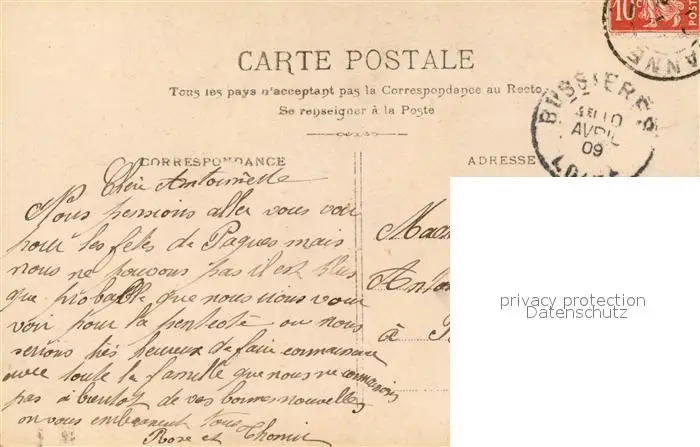 CARTE POSTALE
Tous les pays n'acceptant pas la Correspondance au Recto
Se renseigner à la Poste
CORRESPONDANCE
Chère Antoinette
Nous pensions aller vous voir
pour les fêtes de Paques mais
nous ne pouvons pas il est plus
que probable que nous irons vous
voir pour la pentecôte ou nous
serions très heureux de faire connaissance
avec toute la famille que nous ne connaissons
pas à bientot de vos bonnes nouvelles
on vous embrassent tous
Rose et
ADRESSE
Anto
à
10
POST
ANNE
BUSSIERES
10
AVRIL
09
LOIRE
privacy protection
Datenschutz